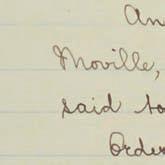 An
Moville,
said to
Order